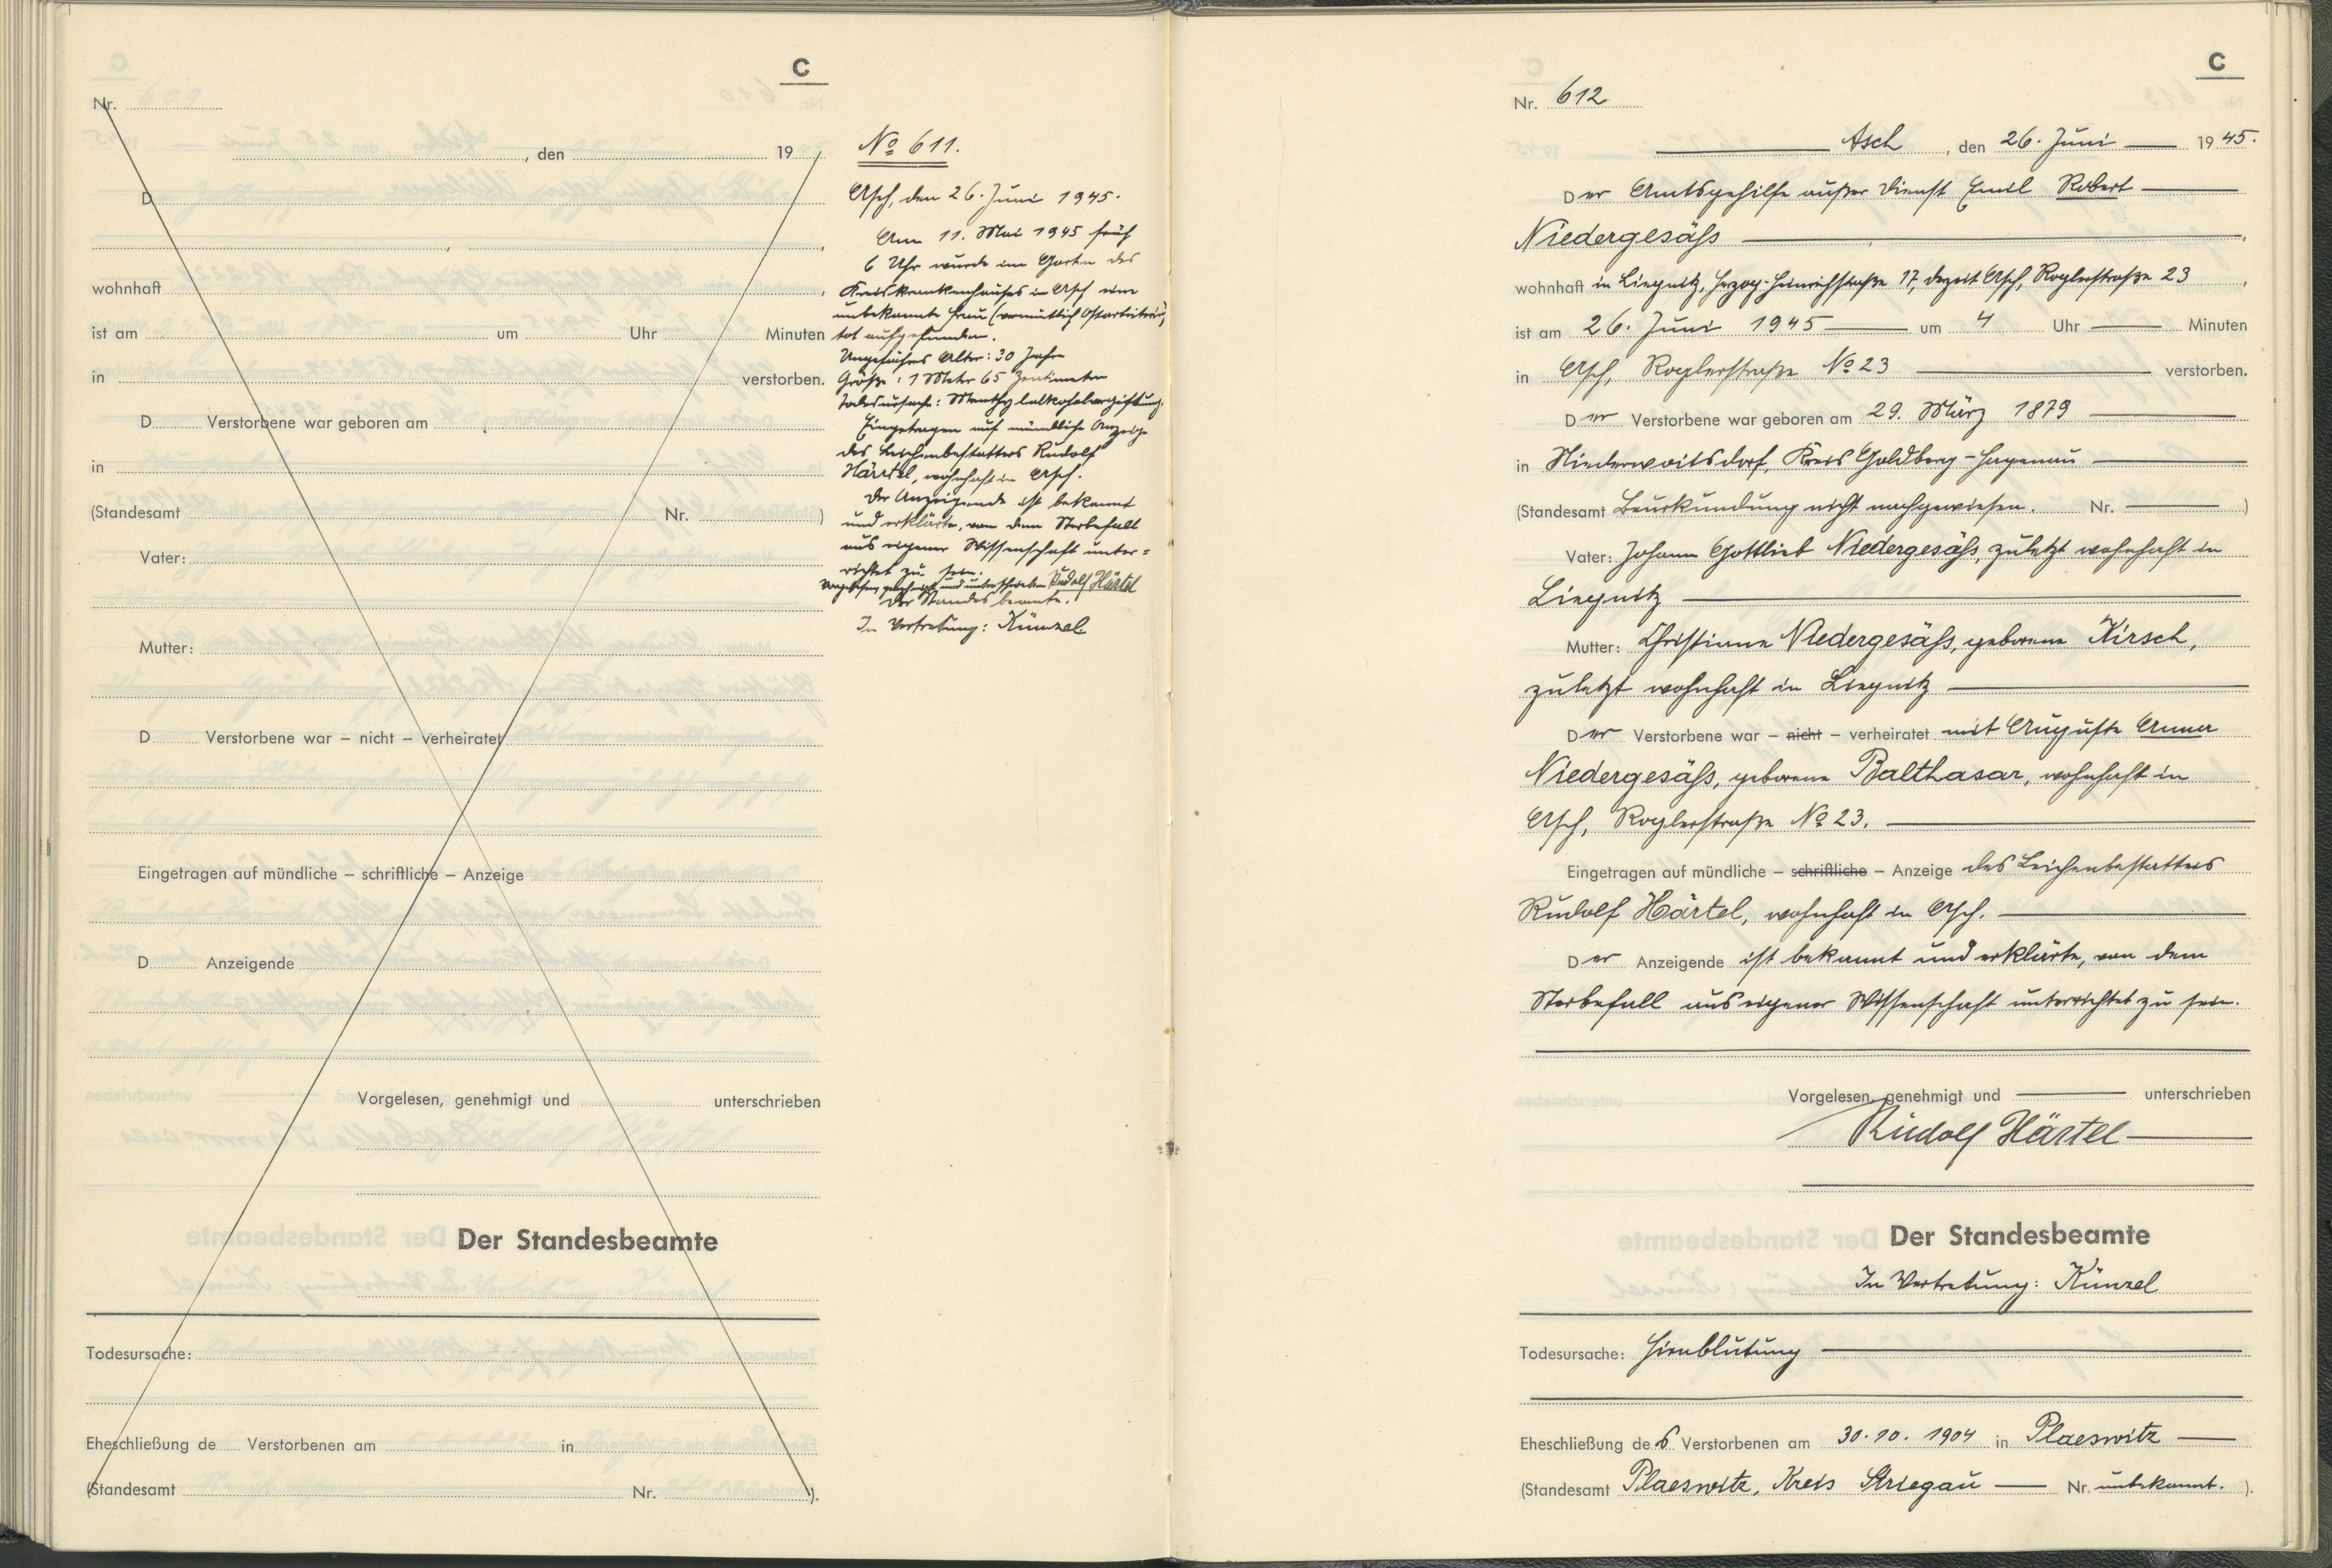 C
Nr.
, den 19
D
,
wohnhaft ,
ist am um Uhr Minuten
in verstorben.
D Verstorbene war geboren am
in
(Standesamt Nr. )
Vater:
Mutter:
D Verstorbene war – nicht – verheiratet
Eingetragen auf mündliche – schriftliche – Anzeige
D Anzeigende
Vorgelesen, genehmigt und unterschrieben
Der Standesbeamte
Todesursache:
Eheschließung de Verstorbenen am in
(Standesamt Nr. ).
No 611.
Asch, den 26. Juni 1945.
Am 11. Mai 1945 früh
6 Uhr wurde im Garten des
Kreiskrankenhauses in Asch eine
unbekannte Frau (vermutlich Ostarbeiterin)
tot aufgefunden.
Ungefähres Alter: 30 Jahre
Größe: 1 Meter 65 Zentimeter
Todesursache: Menthylalkoholvergiftung.
Eingetragen auf mündliche Anzeige
des Leichenbestatters Rudolf
Härtel, wohnhaft in Asch.
Der Anzeigende ist bekannt
und erklärte, von dem Sterbefall
aus eigener Wissenschaft unter=
richtet zu sein.
Vorgelesen, genehmigt und unterschrieben Rudolf Härtel
Der Standesbeamte.
In Vertretung: Künzel
C
Nr. 612
Asch, den 26. Juni 1945.
Der Amtsgehilfe außer Dienst Emil Robert
Niedergesäß ,
wohnhaft in Liegnitz, Herzog-Heinrichstraße 17, derzeit Asch, Roglerstraße 23 ,
ist am 26. Juni 1945 um 4 Uhr Minuten
in Asch, Roglerstraße No 23 verstorben.
Der Verstorbene war geboren am 29. März 1879
in Niederwoitsdorf, Kreis Goldberg-Haynau
(Standesamt Beurkundung nicht nachgewiesen. Nr. )
Vater: Johann Gottlieb Niedergesäß, zuletzt wohnhaft in
Liegnitz
Mutter: Christiane Niedergesäß, geborene Kirsch,
zuletzt wohnhaft in Liegnitz
Der Verstorbene war – nicht – verheiratet mit Auguste Anna
Niedergesäß, geborene Balthasar, wohnhaft in
Asch, Roglerstraße No 23.
Eingetragen auf mündliche – schriftliche – Anzeige des Leichenbestatters
Rudolf Härtel, wohnhaft in Asch.
Der Anzeigende ist bekannt und erklärte, von dem
Sterbefall aus eigener Wissenschaft unterrichtet zu sein.
Vorgelesen, genehmigt und unterschrieben
Rudolf Härtel
Der Standesbeamte
In Vertretung: Künzel
Todesursache: Hirnblutung
Eheschließung des Verstorbenen am 30.10.1904 in Plaeswitz
(Standesamt Plaeswitz, Kreis Striegau Nr. unbekannt. ).